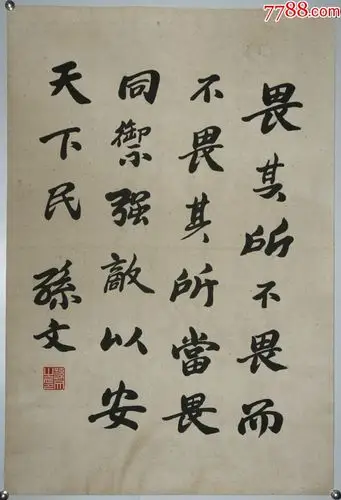 7788.com
畏其所不畏而
不畏其所當畏
同禦强敵以安
天下民
孫文